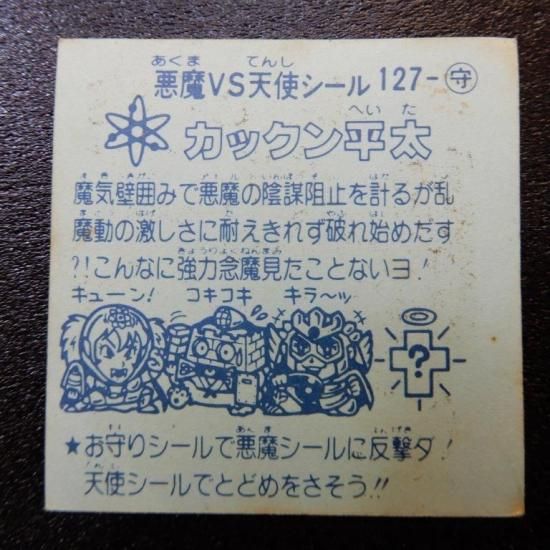 あくま てんし
悪魔VS天使シール 127-守
へいた
カックン平太
魔気壁囲みで悪魔の陰謀阻止を計るが乱
魔動の激しさに耐えきれず破れ始めだす
きょうりょくねんまみ
?!こんなに強力念魔見たことないヨ!
キューン! コキコキ キラ〜ッ
?
あくま はんげき
★お守りシールで悪魔シールに反撃ダ!
てんし
天使シールでとどめをさそう!!